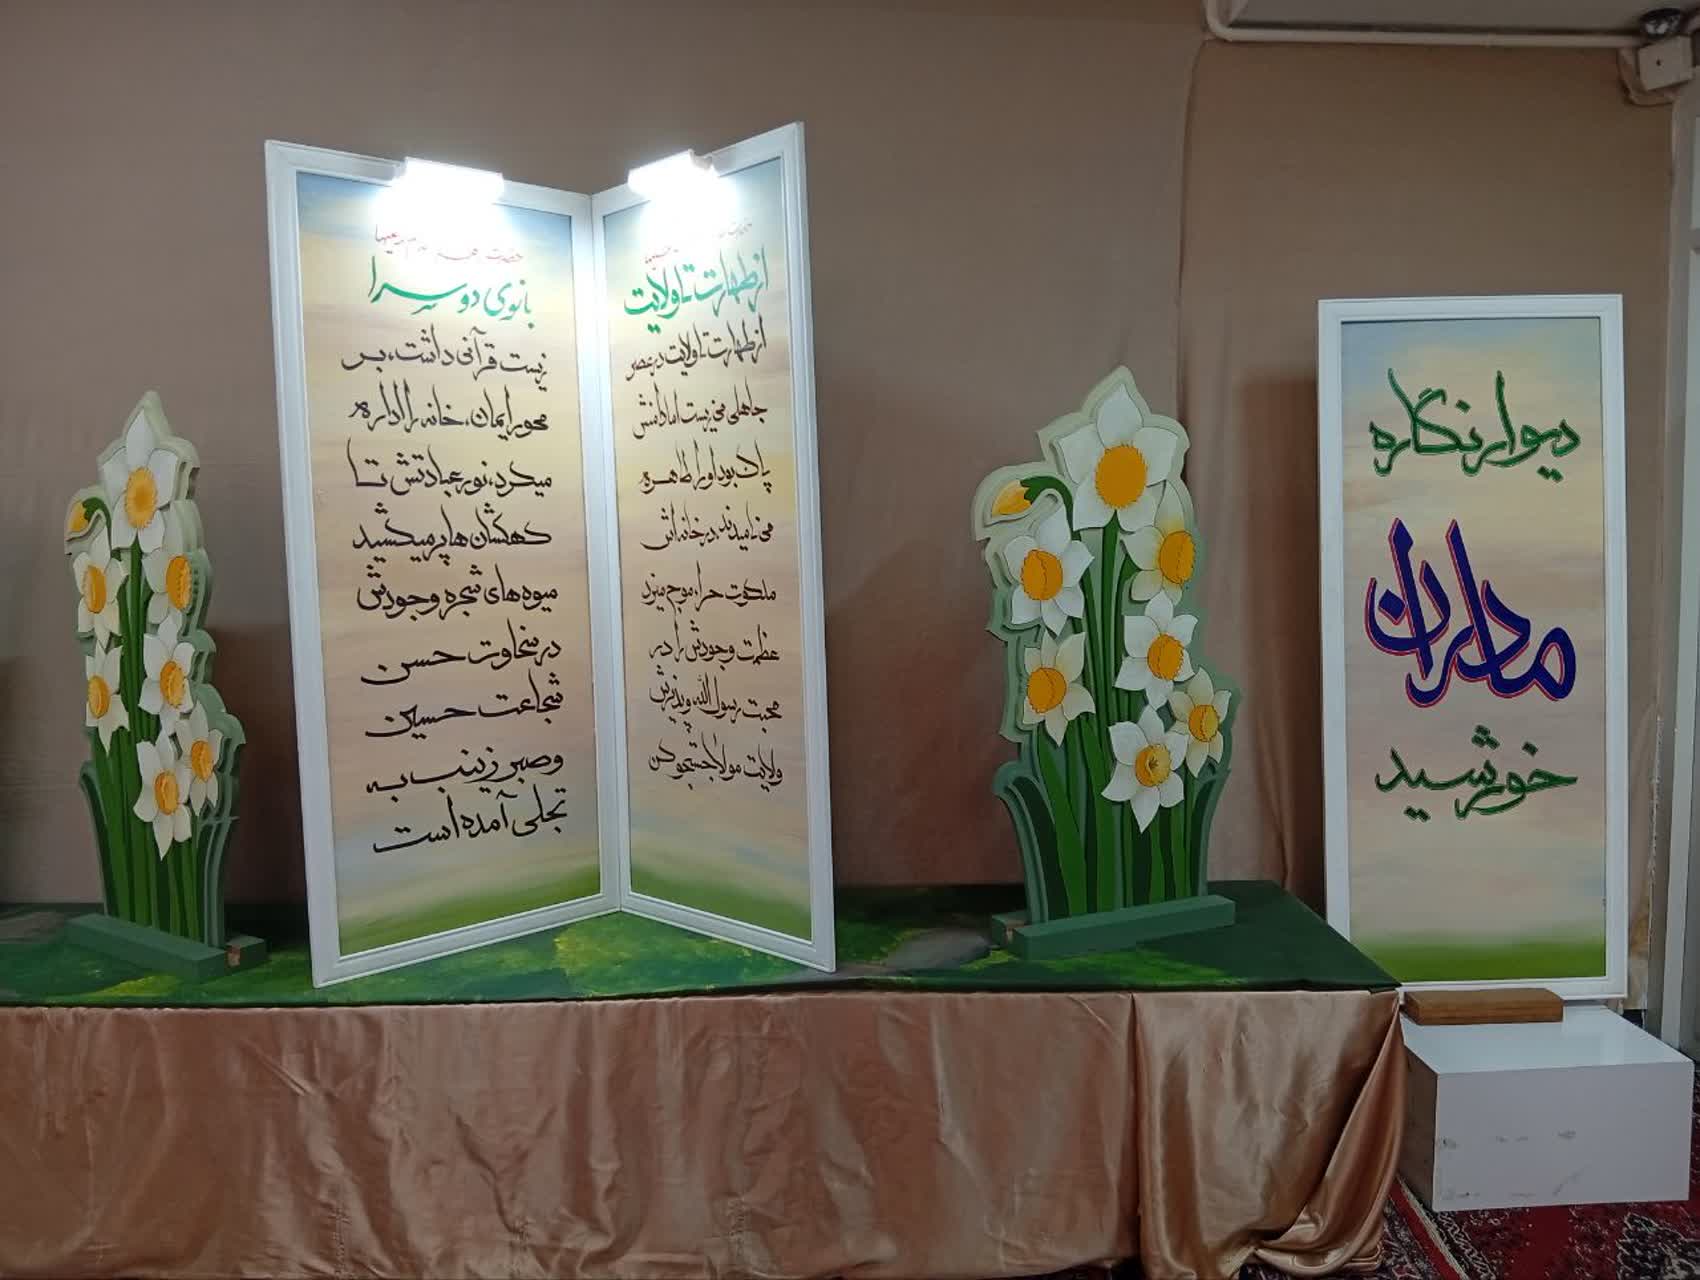 از طهارت تا ولایت
از طهارت تا ولایت در عصر
جاهلی می‌زیست اما دامنش
پاک بود او را طاهره
می‌نامیدند، در خانه‌اش
ملکوت حرا، موج میزد
عظمت وجودش را در
محبت رسول الله و پذیرش
ولایت مولا جستجو کن
حضرت
بانوی دو سرا
زیست قرآنی داشت، بر
محور ایمان، خانه را اداره
میکرد، نور عبادتش تا
کهکشان ها پر میکشید
میوه های شجره وجودش
در سخاوت حسن
شجاعت حسین
و صبر زینب به
تجلی آمده است
دیوارنگاره
مادران
خورشید